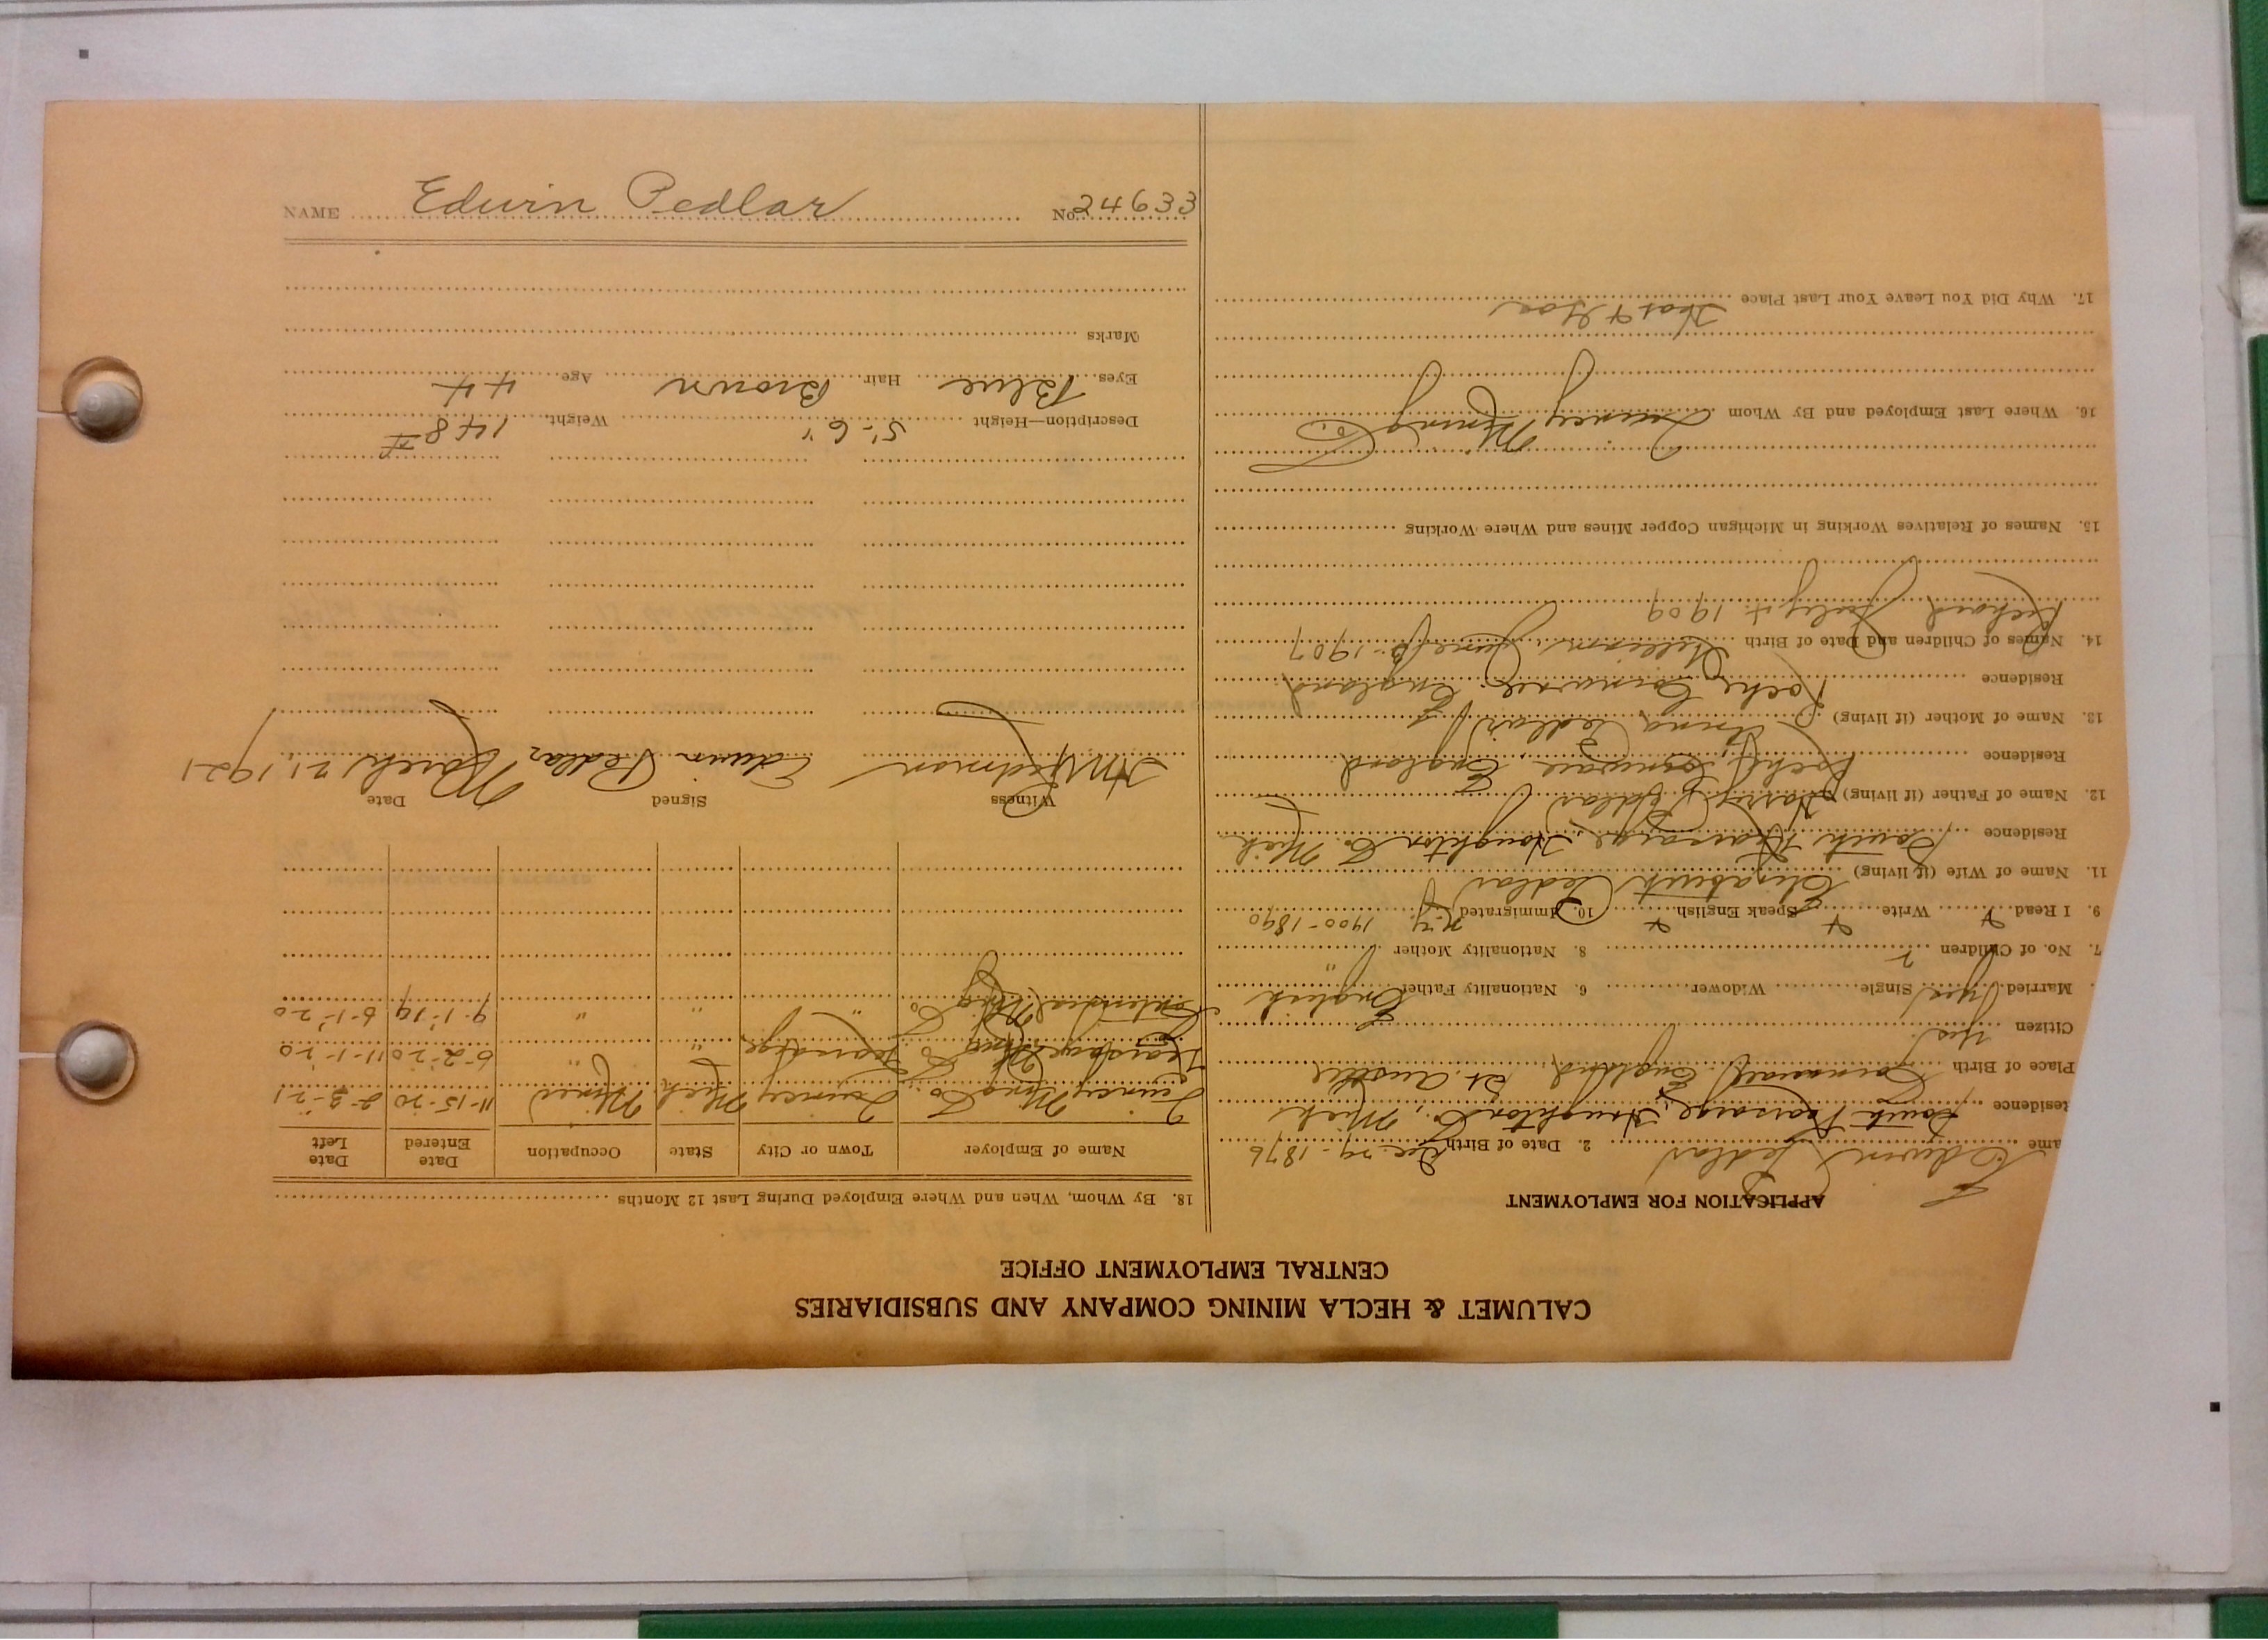 CALUMET & HECLA MINING COMPANY AND SUBSIDIARIES
CENTRAL EMPLOYMENT OFFICE
APPLICATION FOR EMPLOYMENT
ame Edwin Pedlar 2. Date of Birth Dec. 29-1876
Residence South Kearsarge, Houghton Co., Mich
Place of Birth Cornwall England, St. Austell
Citizen Yes
Married Yes Single Widower 6. Nationality Father English
7. No. of Children 2 8. Nationality Mother "
9. I Read Write Speak English 10. Immigrated N.Y. 1900-1890
11. Name of Wife (if living) Elizabeth Pedlar
Residence South Kearsarge, Houghton Co. Mich
12. Name of Father (if living) Harry Pedlar
Residence Roche, Cornwall, England
13. Name of Mother (if living) Anna Pedlar
Residence Roche, Cornwall, England
14. Names of Children and Date of Birth William, June 8-1907
Richard July 4. 1909
15. Names of Relatives Working in Michigan Copper Mines and Where Working
16. Where Last Employed and By Whom Quincy Mining Co.
17. Why Did You Leave Your Last Place
18. By Whom, When and Where Employed During Last 12 Months
Name of Employer Town or City State Occupation Date Entered Date Left
Quincy Mng Co. Quincy Mich. Miner 11-15-20 2-3-21
Kearsarge Co Kearsarge " " 6-2-20 11-1-20
Mng Co " " " 9-1-19 6-1-20
Witness Signed Date
Edwin Pedlar March 21, 1921
Description—Height 5'-6" Weight 148#
Eyes Blue Hair Brown Age 44
Marks
NAME Edwin Pedlar No. 24633